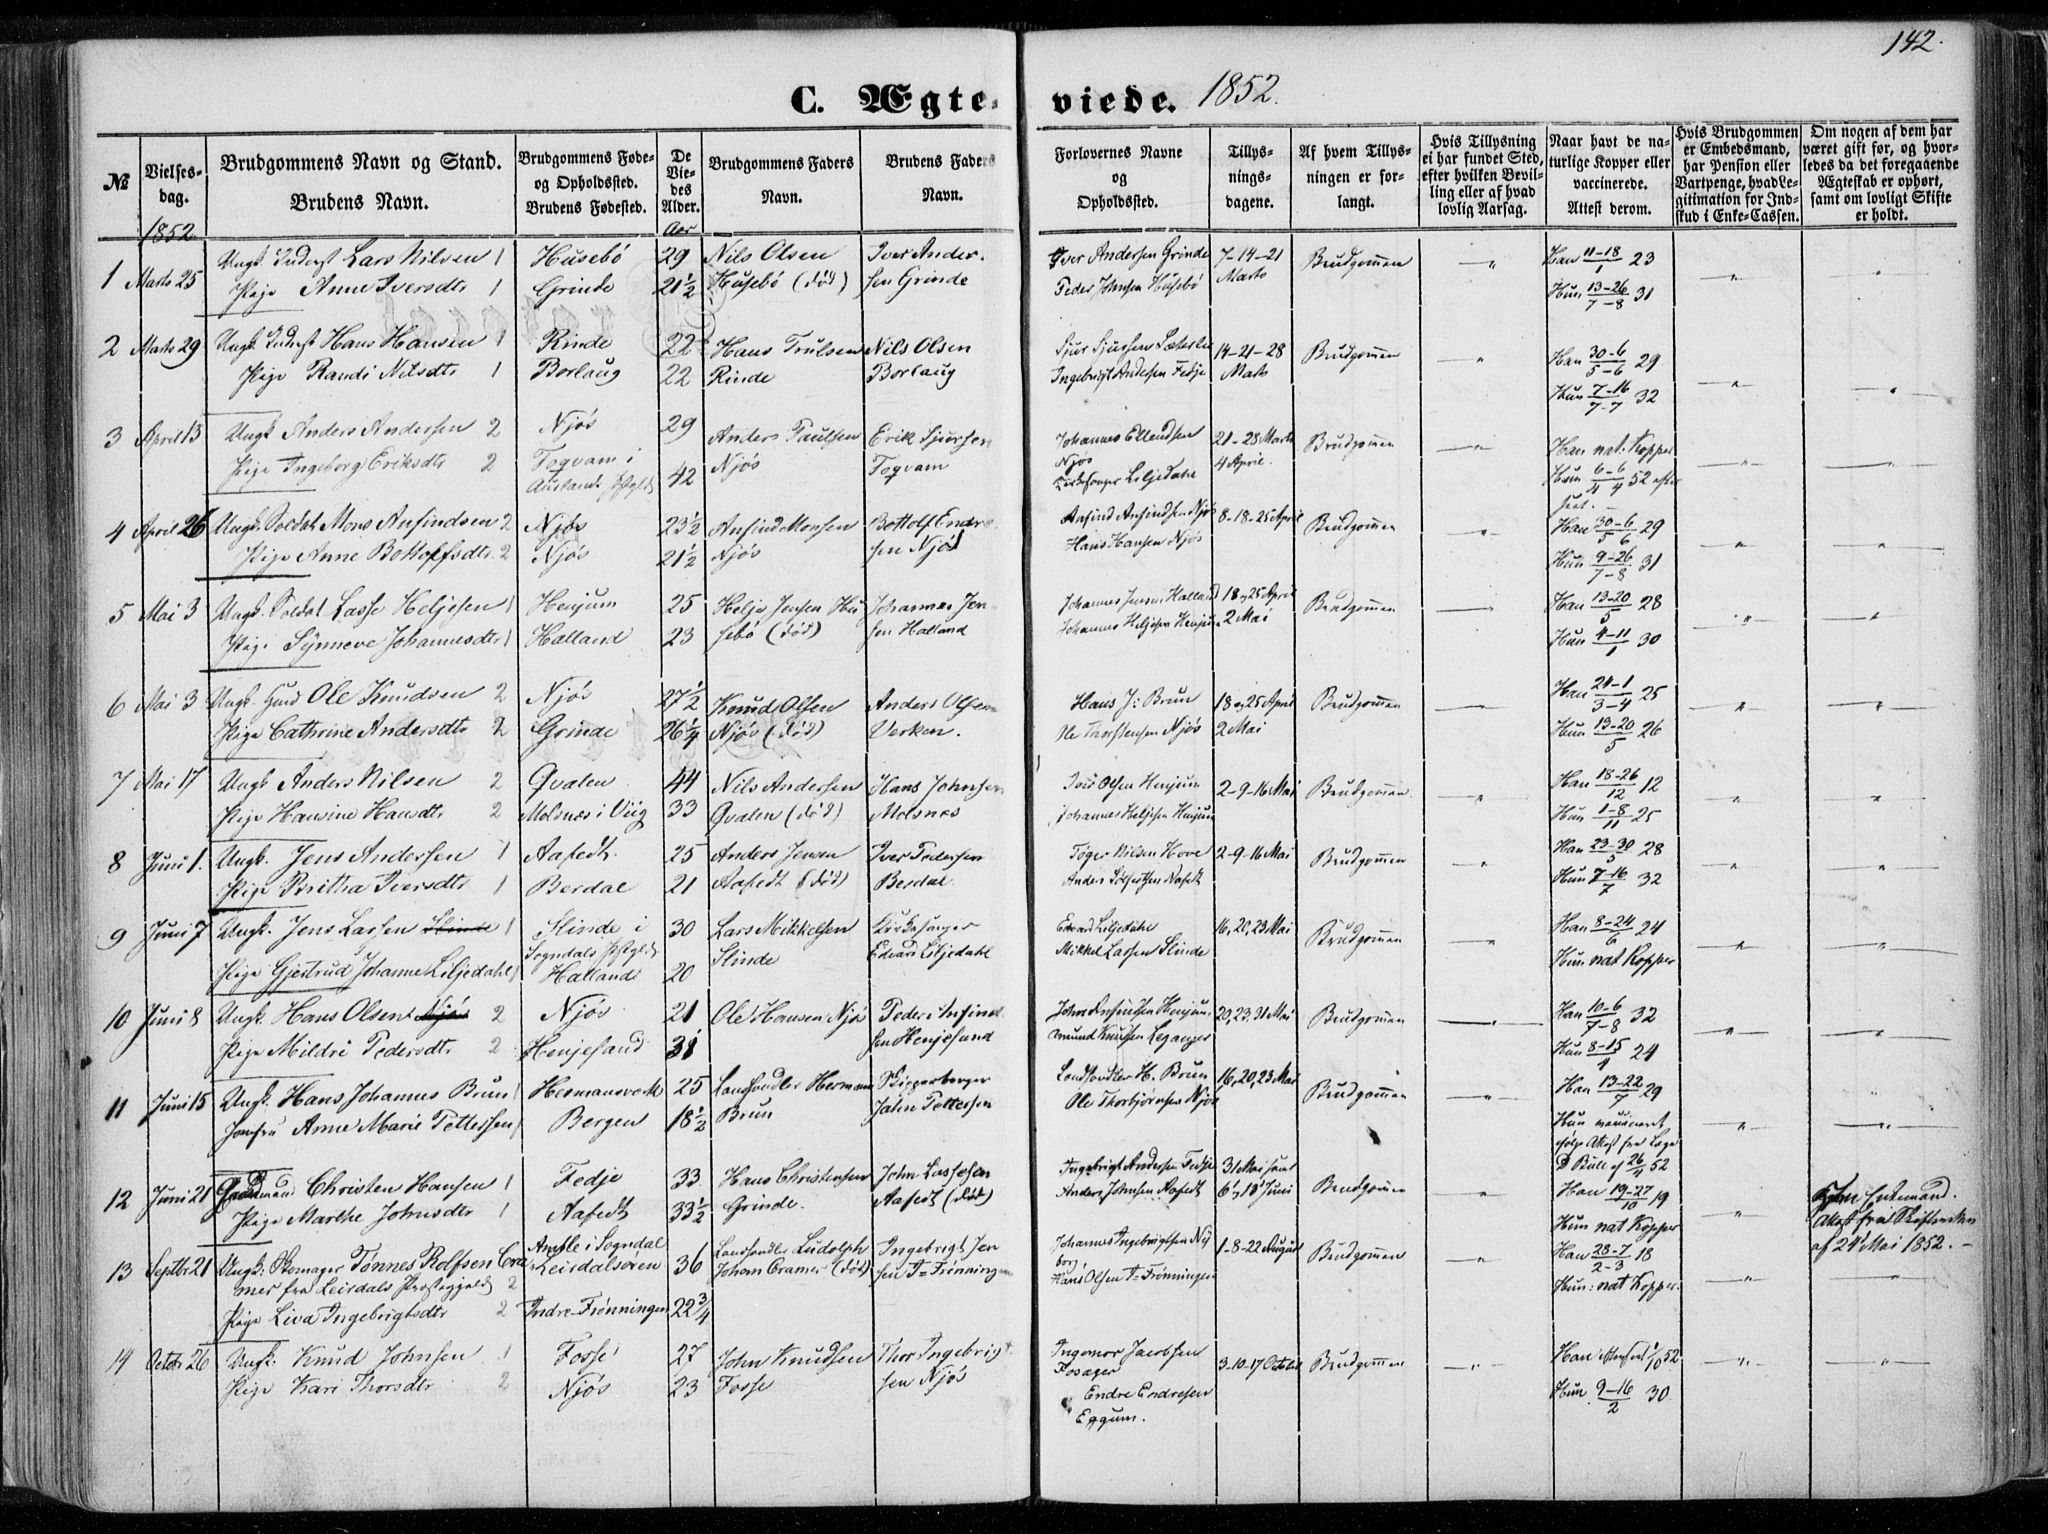 142.
C. Ægteviede. 1852.
№
Vielsesdag.
Brudgommens Navn og Stand.
Brudens Navn.
Brudgommens Føde- og Opholdssted.
Brudens Fødested.
De Viedes Alder.
Brudgommens Faders Navn.
Brudens Faders Navn.
Forlovernes Navne og Opholdssted.
Tillysningsdagene.
Af hvem Tillysningen er forlangt.
Hvis Tillysning ei har fundet Sted, efter hvilken Bevilling eller af hvad lovlig Aarsag.
Naar havt de naturlige Kopper eller vaccinerede.
Attest derom.
Hvis Brudgommen er Embedsmand, har Pension eller Vartpenge, hvad Legitimation for Indskud i Enke-Cassen.
Om nogen af dem har været gift før, og hvorledes da det foregaaende Ægteskab er ophørt, samt om lovligt Skifte er holdt.
1852.
Aar
1 Marts 25 Ungk. Inderst Lars Nilsen 1 Husebö 29 Nils Olsen Iver Ander- Iver Andersen Grinde 7-14-21 Brudgommen " Han 11-18/1 23 " "
Pige Anne Iversdtr 1 Grinde 21½ Husebö (död) sen Grinde Peder Johnsen Husebö Marts Hun 13-26/7-8 31
2 Marts 29 Ungk. Inderst Hans Hansen 1 Rinde 22 Hans Trulsen Nils Olsen Sjur Sjursen 14-21-28 Brudgommen " Han 30-6/5-6 29 " "
Pige Randi Nilsdtr 1 Borlaug 22 Rinde Borlaug Ingebrigt Andersen Fedje Marts Hun 7-16/7-7 32
3 April 13 Ungk Anders Andersen 2 Njös 29 Anders Paulsen Erik Sjursen Johannes Ellendsen 21-28 Marts Brudgommen " Han nat. Kopper " "
Pige Ingeborg Eriksdtr 2 Fogvam i 42 Njös Fogvam Njös 4 April. Hun 6-6/4 4 52 efter
Kirkesanger Liljedahl
4 April 26 Ungk. Soldat Mons Ansindsen 2 Njös 23½ Ansind Monsen Bottolf Endre- Ansind Ansindsen Njös 8-18-25 April Brudgommen " Han 30-6/5 6 29 " "
Pige Anne Bottolfsdtr. 2 Njös 21½ Njös sen Njös Hans Hansen Njös Hun 9-26/7-8 31
5 Mai 3 Ungk. Soldat Lasse Heljesen 1 Henjum 25 Helje Jensen Hu- Johannes Jen- Johannes Jensen Halland 18 og 25 April Brudgommen " Han 13-20/5 28 " "
Pige Synneve Johannesdtr 1 Halland 23 sebö (död) sen Halland Johannes Heljesen Henjum 2 Mai Hun 4-11/1 30
6 Mai 3 Ungk. Ole Knudsen 2 Njös 27½ Knud Olsen Anders Olsen Hans J: Brun 18 og 25 April Brudgommen " Han 24-1/3-4 25 " "
Pige Cathrine Andersdtr 2 Grinde 26¼ Njös (död) Verken. Ole Thorstensen Njös 2 Mai Hun 13-20/5 26
7 Mai 17 Ungk Anders Nilsen 2 Qvalen 44 Nils Andersen Hans Johnsen Olsen Henjum 2-9-16 Mai Brudgommen. " Han 18-26/12 12 " "
Pige Hansine Hansdtr 2 Molsnæs i Viig 33 Qvalen (död) Molsnes Johannes Heljesen Henjum Hun 1-8/11 25
8 Juni 1. Ungk. Jens Andersen 1 Aafedt 25 Anders Jensen Iver Pedersen Töger Nilsen Hove 2-9-16 Mai Brudgommen " Han 23-30/5 28 " "
Pige Britha Iversdtr 1 Berdal 21 Aafedt (död) Berdal Anders Aafedt Hun 7-16/7 32
9 Juni 7 Ungk. Jens Larsen Slinde 1 Slinde i 30 Lars Mikkelsen Kirkesanger Edvard Liljedahl 16, 20, 23 Mai Brudgommen " Han 8-24/6 24 " "
Sogndals Prstgjld Slinde Edvard Liljedahl Mikkel Larsen Slinde
Pige Gjertrud Johanne Liljedahl 1 Halland 20 Hun nat Kopper
10 Juni 8 Ungk. Hans Olsen Njös 2 Njös 21 Ole Hansen Njös Peder Ansind- John Ansindsen Henjum 20, 23, 31 Mai Brudgommen " Han 10-6/7-8 32 " "
Pige Mildri Pedersdtr 2 Henjesand 31 sen Henjesand Amund Knudsen Leganger Hun 8-15/4 24
11 Juni 15 Ungk. Hans Johannes Brun 1 Hermansverk 25 Landhandler Herman Skipperborger Landhandler H. Brun 16, 20, 23 Mai Brudgommen " Han 13-22/7 29 " "
Jomfru Anne Marie Pettersen 1 Bergen 18½ Brun Jahn Pettersen Ole Thorbjörnsen Njös Hun vaccineret
ifölge Attest fra Læge
D Bull af 26/4 52
12 Juni 21 Christen Hansen 1 Fedje 33 Hans Christensen John Lassesen Ingebrigt Andersen Fedje 31 Mai samt Brudgommen " Han 19-27/10 19 " Enkemand.
Pige Marthe Johnsdtr 1 Aafedt 33½ Grinde. Aafedt (död) Anders Johnsen Aafedt 6 og 13 Juni Hun nat Kopper Attest fra Skifteretten
af 24 Mai 1852. -
13 Septbr 21 Ungk: Skomager Tönnes Rolfsen Cra- Amble i Sogndal 36 Landhandler Ludolph Ingebrigt Jen- Johannes Ingebrigtsen Ny- 1-8-22 August Brudgommen " Han 28-7/2-3 18 " "
mer fra Leirdals Præstegjeld 2 Leirdalsören Johan Cramer (död) sen I=Frönningen borg
Hans Olsen I=Frönningen Hun: nat Kopper.
Pige Liva Ingebrigtsdtr 2 Indre-Frönningen 22¾
14 Octbr 26 Ungk: Knud Johnsen 1 Fosse 27 John Knudsen Thor Ingebrigt- Ingemor Jacobsen 3-10-17 October Brudgommen " Han 1/10 52 " "
Pige Kari Thorsdtr 2 Njös 23 Fosse sen Njös Fosager Hun 9-16/2 30
Endre Endresen
Eggum.